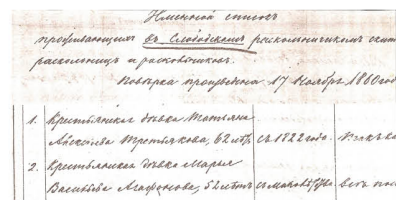 Именной список
проживающих въ Слободскомъ раскольничьем ските
раскольниц и раскольников.
Поверка произведена 17 Ноября 1860 год
1. Крестьянская девка Татьяна
Алексеева Третьякова, 62 лет, съ 1822 года.
2. Крестьянская девка Марья
Васильева Агафонова, 52 летъ съ